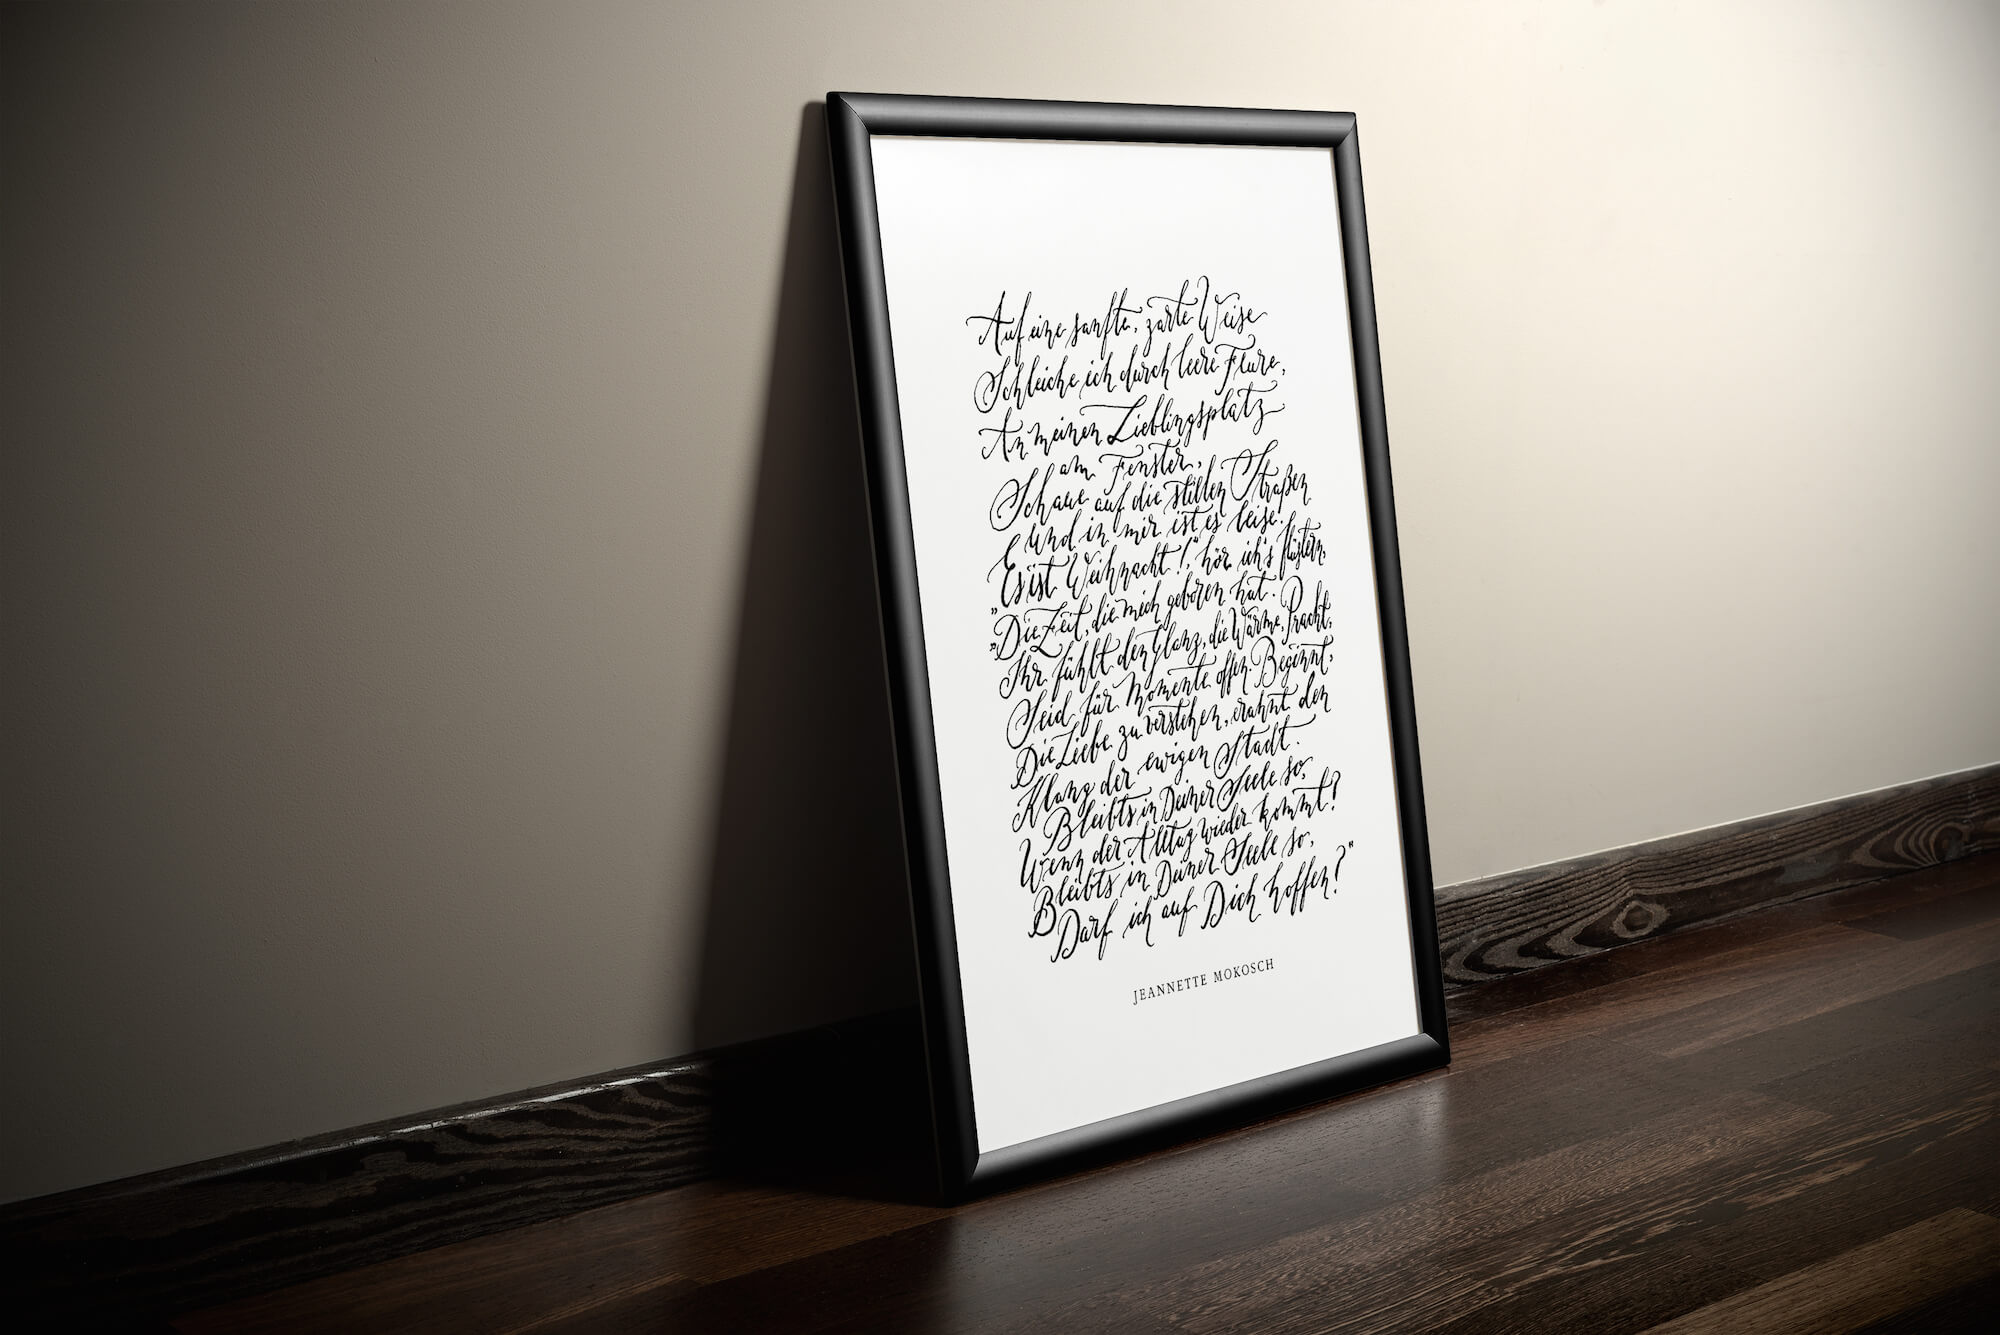 Auf eine sanfte, zarte Weise
Schleiche ich durch leere Flure,
An meinen Lieblingsplatz
am Fenster,
Schaue auf die stillen Straßen
Und in mir ist es leise.
"Es ist Weihnacht!", hör ich's flüstern,
"Die Zeit, die mich geboren hat.
Ihr fühlt den Glanz, die Wärme, Pracht,
Seid für Momente offen. Beginnt,
Die Liebe zu verstehen, erahnt den
Klang der ewigen Stadt.
Bleibts in Deiner Seele so,
Wenn der Alltag wieder kommt?
Bleibts in Deiner Seele so,
Darf ich auf Dich hoffen?"
JEANNETTE MOKOSCH